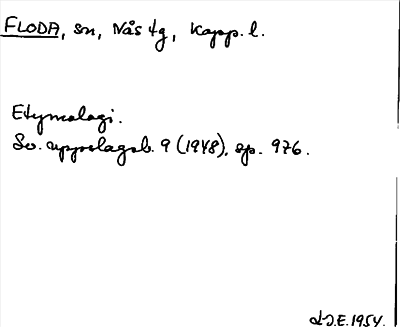 FLODA, sn, Nås tg, Kopp. l.
Etymologi.
Sv. uppslagsb. 9 (1948), sp. 976.
J.E. 1954.